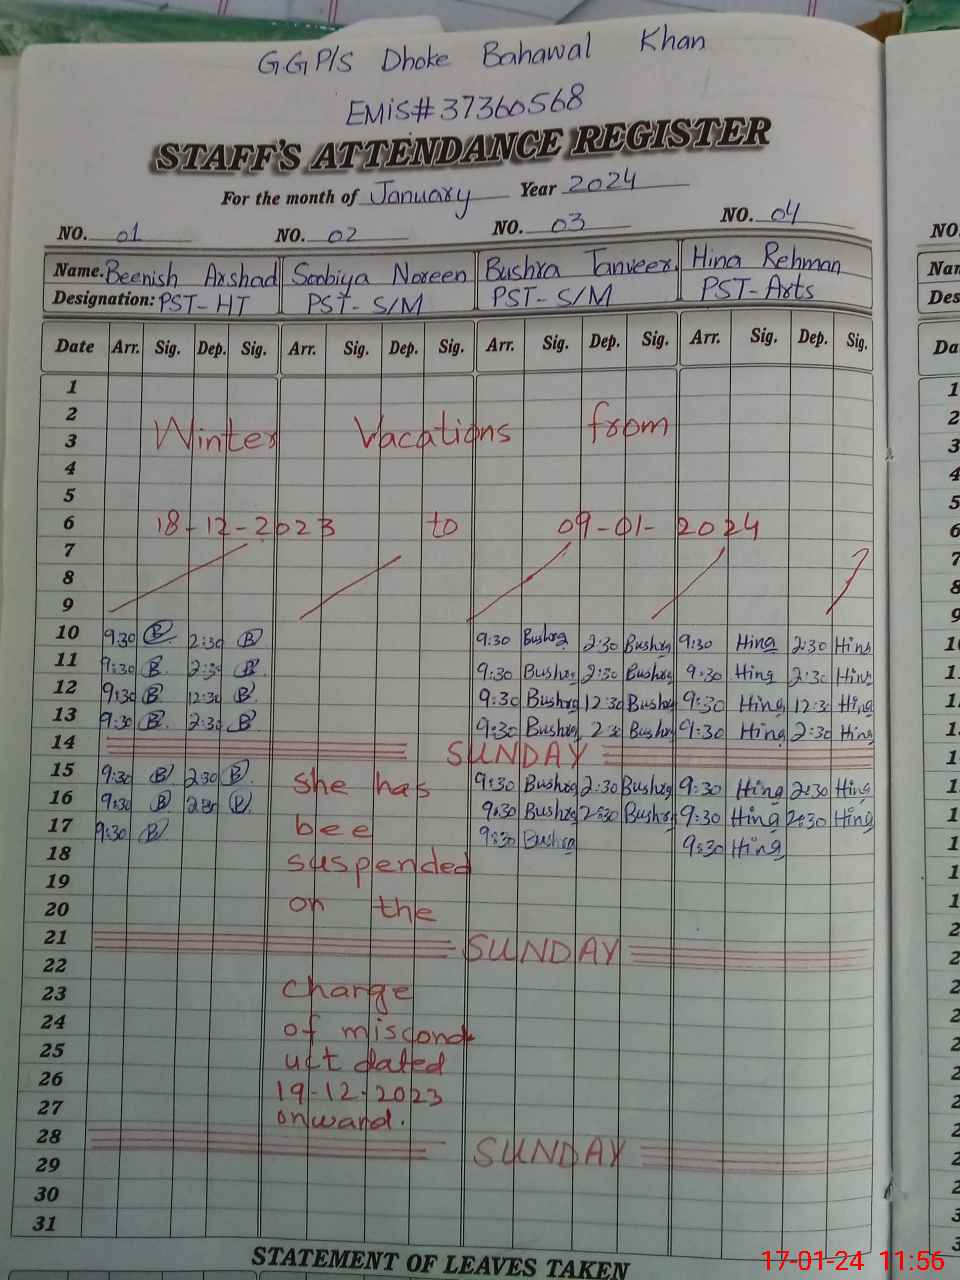 GGP/S Dhoke Bahawal Khan
EMIS# 37360568
STAFF'S ATTENDANCE REGISTER
For the month of January Year 2024
NO. 01 NO. 02 NO. 03 NO. 04 NO.
Name. Beenish Arshad Soobiya Noreen Bushra Tanveer Hina Rehman
Designation: PST-HT PST-S/M PST-S/M PST-Arts
Date Arr. Sig. Dep. Sig. Arr. Sig. Dep. Sig. Arr. Sig. Dep. Sig. Arr. Sig. Dep. Sig.
1
2
Winter Vacations from
3
4
5
6 18-12-2023 to 09-01-2024
7
8
9
10 9:30 B 2:30 B 9:30 Bushra 2:30 Bushra 9:30 Hina 2:30 Hina
11 9:30 B 2:30 B 9:30 Bushra 2:30 Bushra 9:30 Hina 2:30 Hina
12 9:30 B 12:30 B 9:30 Bushra 12:30 Bushra 9:30 Hina 12:30 Hina
13 9:30 B 2:30 B 9:30 Bushra 2:30 Bushra 9:30 Hina 2:30 Hina
14 SUNDAY
15 9:30 B 2:30 B she has 9:30 Bushra 2:30 Bushra 9:30 Hina 2:30 Hina
16 9:30 B 2:30 B 9:30 Bushra 2:30 Bushra 9:30 Hina 2:30 Hina
17 9:30 B bee 9:30 Bushra 9:30 Hina
18 suspended
19
20 on the
21 SUNDAY
22
23 charge
24 of miscond
25 uct dated
26 19-12-2023
27 onward.
28 SUNDAY
29
30
31
STATEMENT OF LEAVES TAKEN
17-01-24 11:56